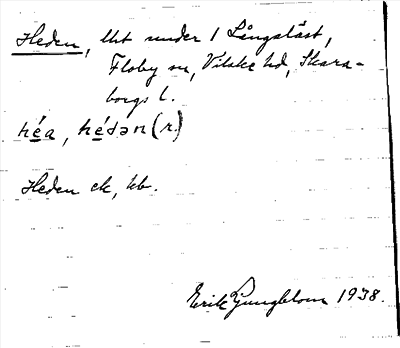 Heden, lht under 1 Långalåst,
Floby sn, Vilske hd, Skara-
borgs l.
héa, hédən (r.)
Heden ek, kb.
Erik Ljungblom 1938.